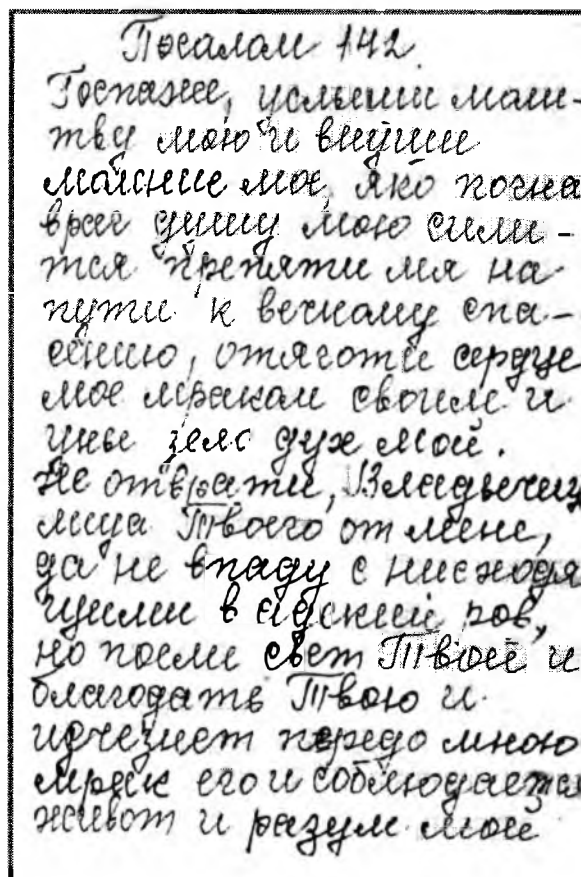 Псалом 142.
Госпоже, услыши моли-
тву мою и внуши
моление мое, яко погна
враг душу мою сили-
тся препяти мя на
пути к вечному спа-
сению, отяготи сердце
мое мраком своим и
уны зело дух мой.
Не отврати, Владычиц
лица Твоего от мене,
да не впаду с нисходя
щими в адский ров,
но посли свет Твой и
благодать Твою и
исчезнет передо мною
мрак его и соблюдается
живот и разум мой